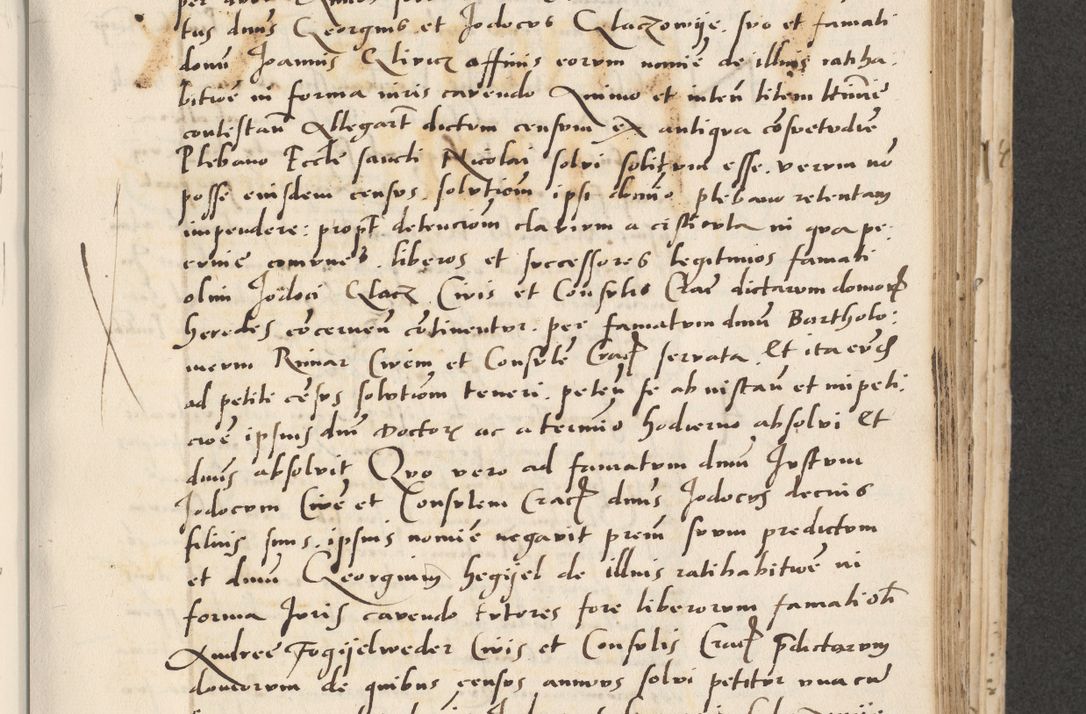 tus dnus Georgius et Jodocus Glaczowije, suo et famati
domi Joannis Glivicz affinis eorum nomie de illius ratiha,
bitioe in forma iuris cavendo Animo et inten litem ltimie
contestan Allegart dictum censum ex antiqua cosuetudie
Plebano Eccle sancti Nicolai solvi solitum esse, verum no
posse eiusdem census, solutiom ipsi domio plebano retentam
impendere: propt detenciom clavium a cisticula in qua pe:
cunie comunes, liberos et successores legitimos famati
olim Jodoci Glacz Civis et Consulis Crac dictarum domor
heredes cocernen cotinentur, per famatum dnum Bartholo:
meum Rimar Civem et Consule Crac servata Et ita eud
ad petite cesus solutiom teneri, peten se ab instan et impeti,
cioe ipsius dni Doctoris ac a termio hodierno absolvi Et
dnus absolvit Quo vero ad famatum dnum Justum
Jodocum Cive et Consulem Crac dnus Jodocus decius
filius suus, ipsius nomie negavit prem suum predictum
et dnum Georgium hegijel de illius ratihabitioe in
forma Juris cavendo tutores fore liberorum famati oli
Andree Fogijelweder Civis et Consulis Crac pdictarum
domorum de quibus census annuus solvi petitur una cu